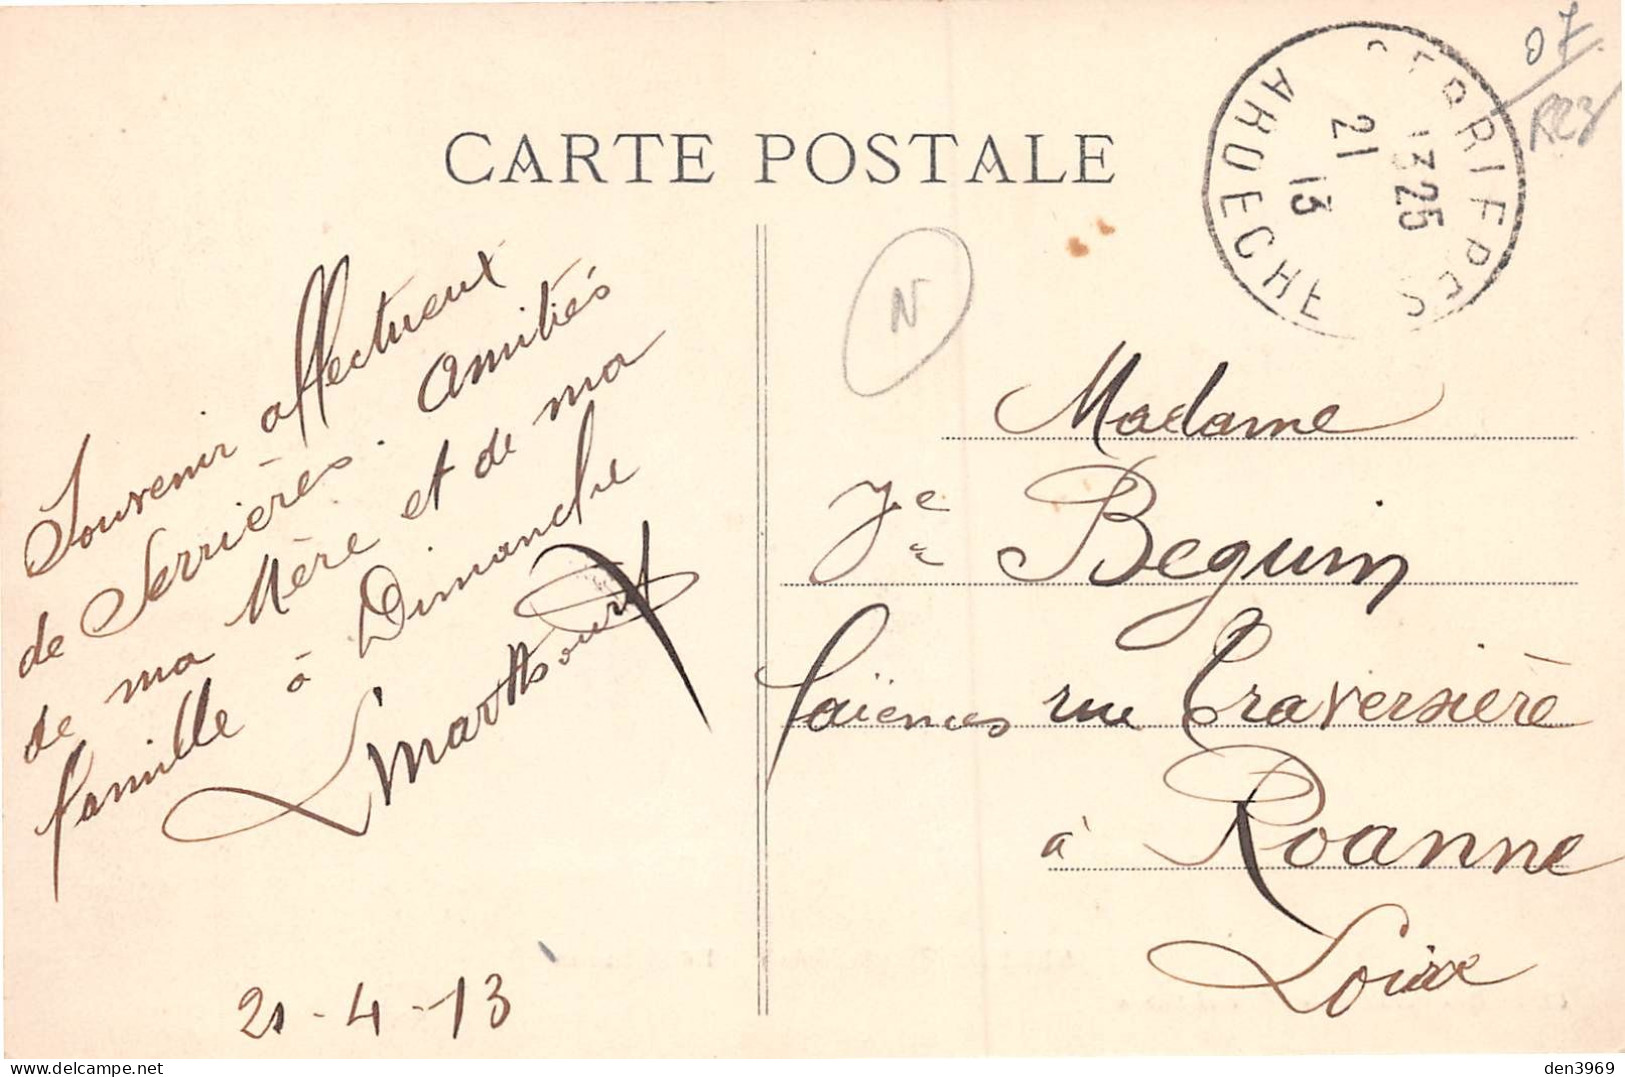 CARTE POSTALE
SERRIERES
ARDECHE
13 25
21
13
07
N
Souvenir affectueux
de Serrières. Amitiés
de ma Mère et de ma
famille à Dimanche
21-4-13
Madame
Beguin
faïences rue Traversière
à Roanne
Loire
den3969